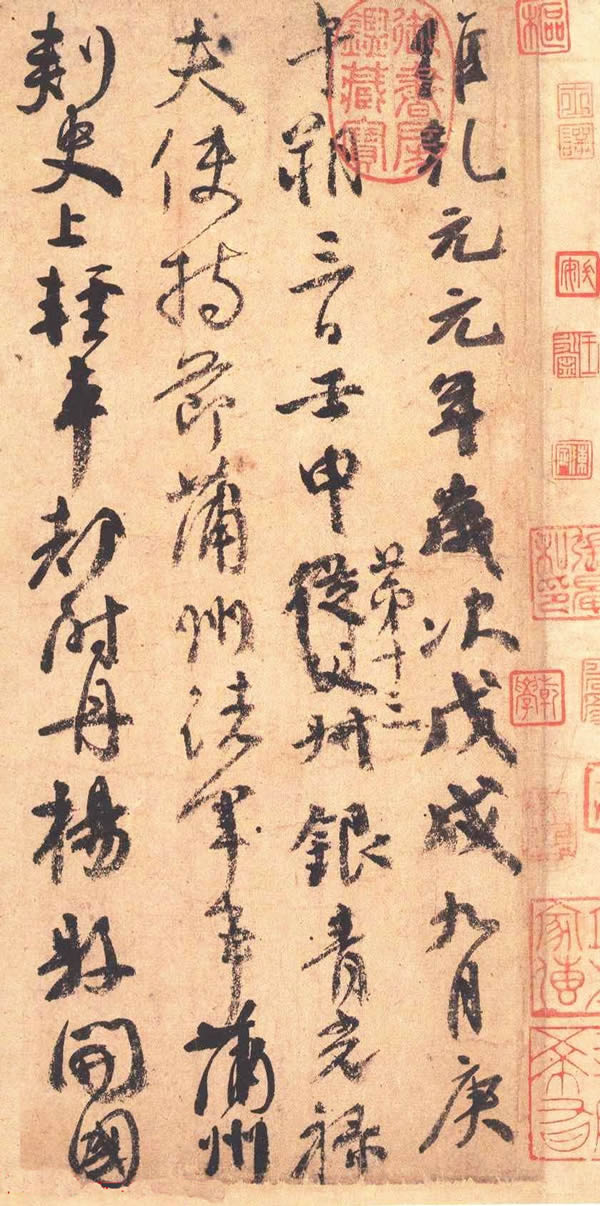 維乾元元年歲次戊戌九月庚
午朔三日壬申
第十三
從父
叔銀青光祿
夫使持節蒲州諸軍事蒲州
刺史上輕車都尉丹楊縣開國
御書房鑑藏寶
乾學